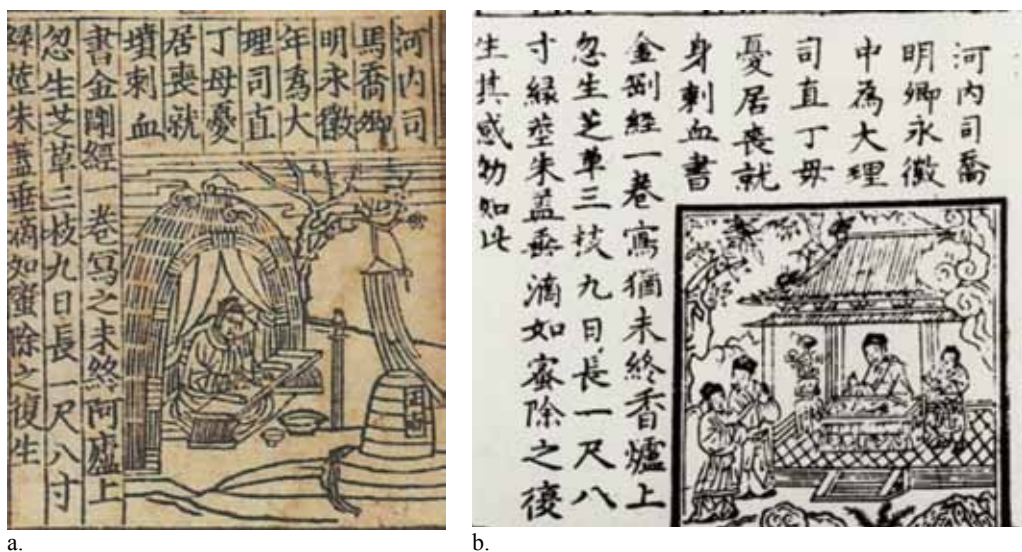 河内司
馬喬卿
明永徽
年為大
理司直
丁母憂
居喪就
墳刺血
書金剛經一卷冩之未終阿廬上
忽生芝草三枝九日長一尺八寸
綠莖朱蓋垂滴如蜜除之復生
a.
河内司喬
明卿永徽
中為大理
司直丁毋
憂居喪就
身刺血書
金剛經一卷寫猶未終香爐上
忽生芝草三枝九日長一尺八
寸緑莖朱蓋垂滴如蜜除之復
生其感物如此
b.